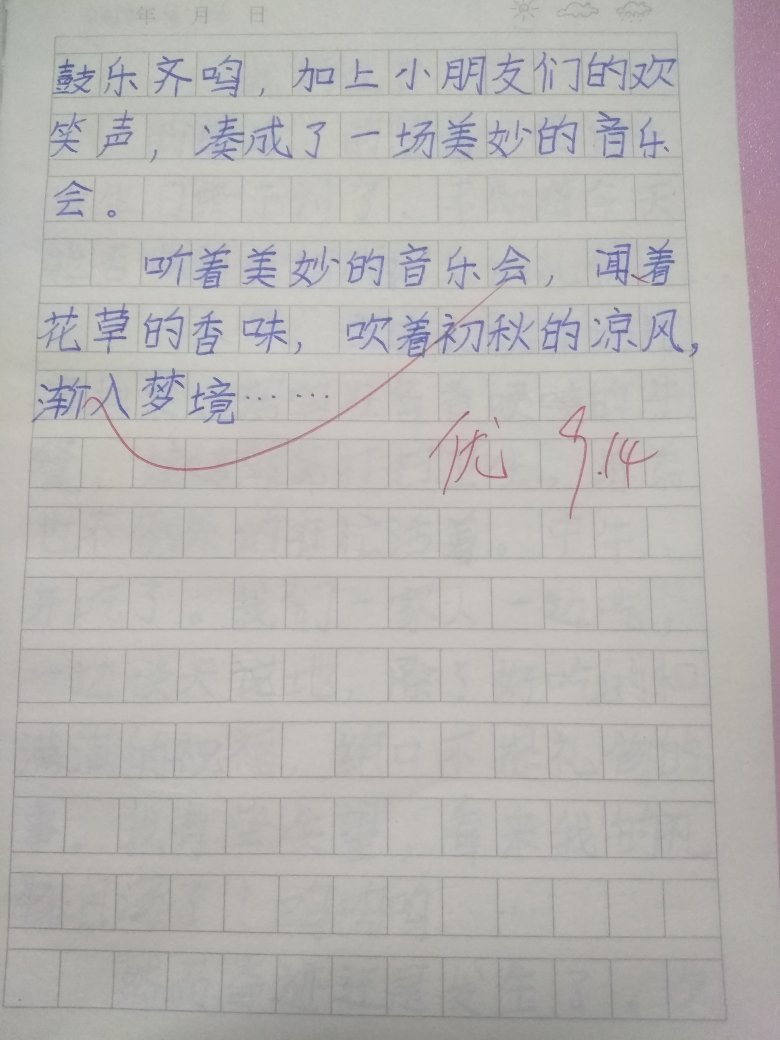 年 月 日
鼓乐齐鸣，加上小朋友们的欢
笑声，凑成了一场美妙的音乐
会。
听着美妙的音乐会，闻着
花草的香味，吹着初秋的凉风，
渐入梦境……
优 9.14